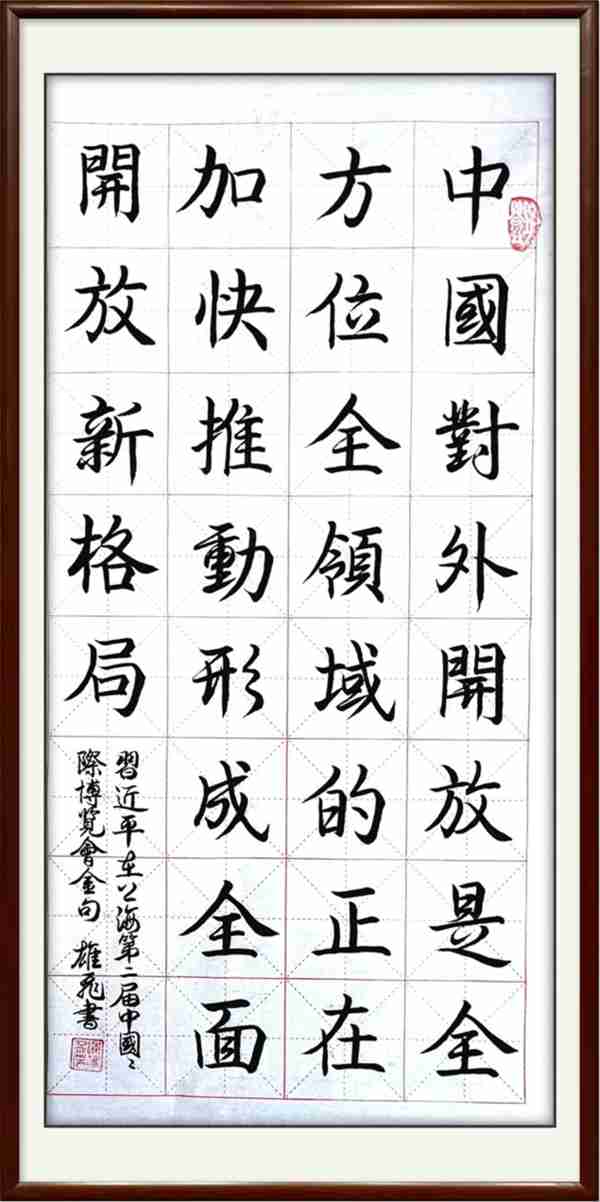 中國對外開放是全
方位全領域的正在
加快推動形成全面
開放新格局
習近平在上海第二届中國〻
際博覽會金句 雄飛書